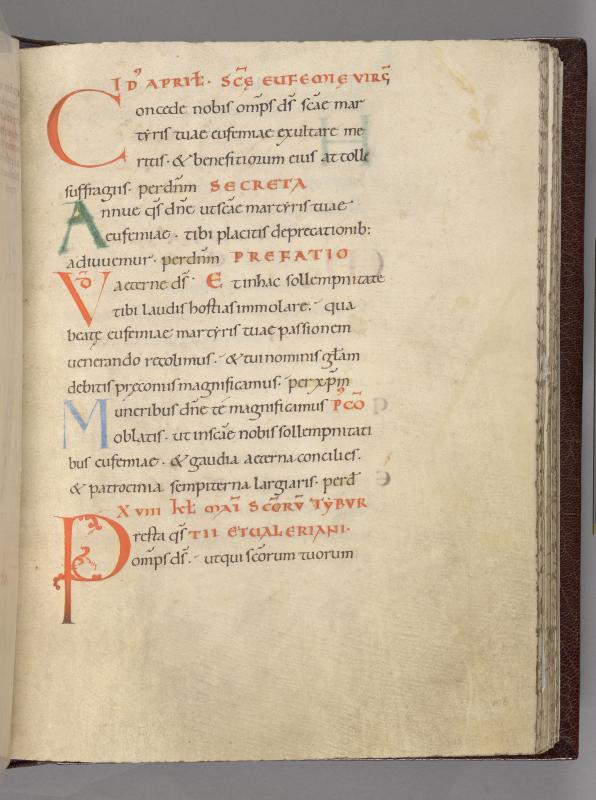 ID APRIL̄. SC̄Ę EUFEMIĘ VIRḠ
Concede nobis om̄ps d̄s sc̄ae mar
tyris tuae eufemiae exultare me
ritis. & benefitiorum eius attolle
suffragiis. perdn̄m SECRETA
Annue q̄s dn̄e ut sc̄ae martyris tuae
eufemiae. tibi placitis deprecationib:
adiuuemur. perdn̄m PREFATIO
V̄D̄ aeterne d̄s. Et in hac sollempnitate
tibi laudis hostias immolare. qua
beatę eufemiae martyris tuae passionem
uenerando recolimus. & tui nominis gl̄am
debitis pręconiis magnificamus. per xp̄m
Muneribus dn̄e te magnificamus P̄CŌ
oblatis. ut in sc̄ae nobis sollempnitati
bus eufemiae. & gaudia aeterna concilies.
& patrocinia sempiterna largiaris. per d̄
XVIII kl̄ MAĪ SC̄ORŪ TYBVR
Presta q̄s TII ET UALERIANI.
om̄ps d̄s. ut qui sc̄orum tuorum